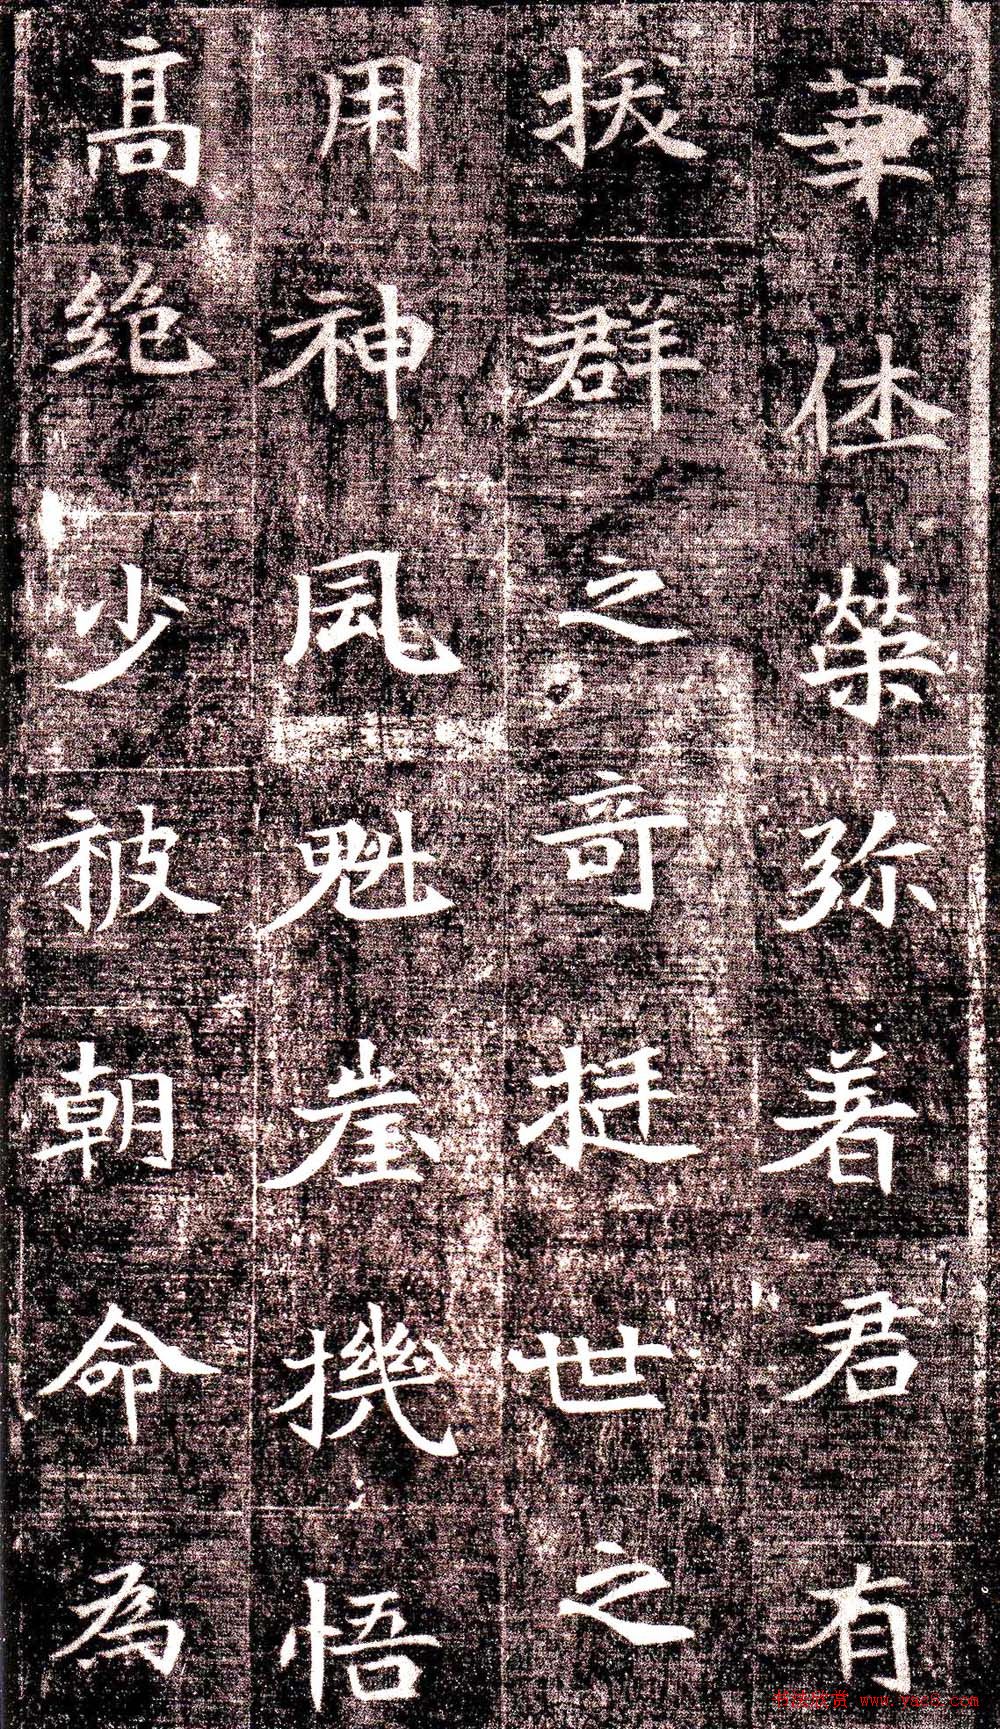 華体荣弥著君有
拔群之奇挺世之
用神風魁崖機悟
高绝少被朝命為
书法欣赏 www.yac8.com